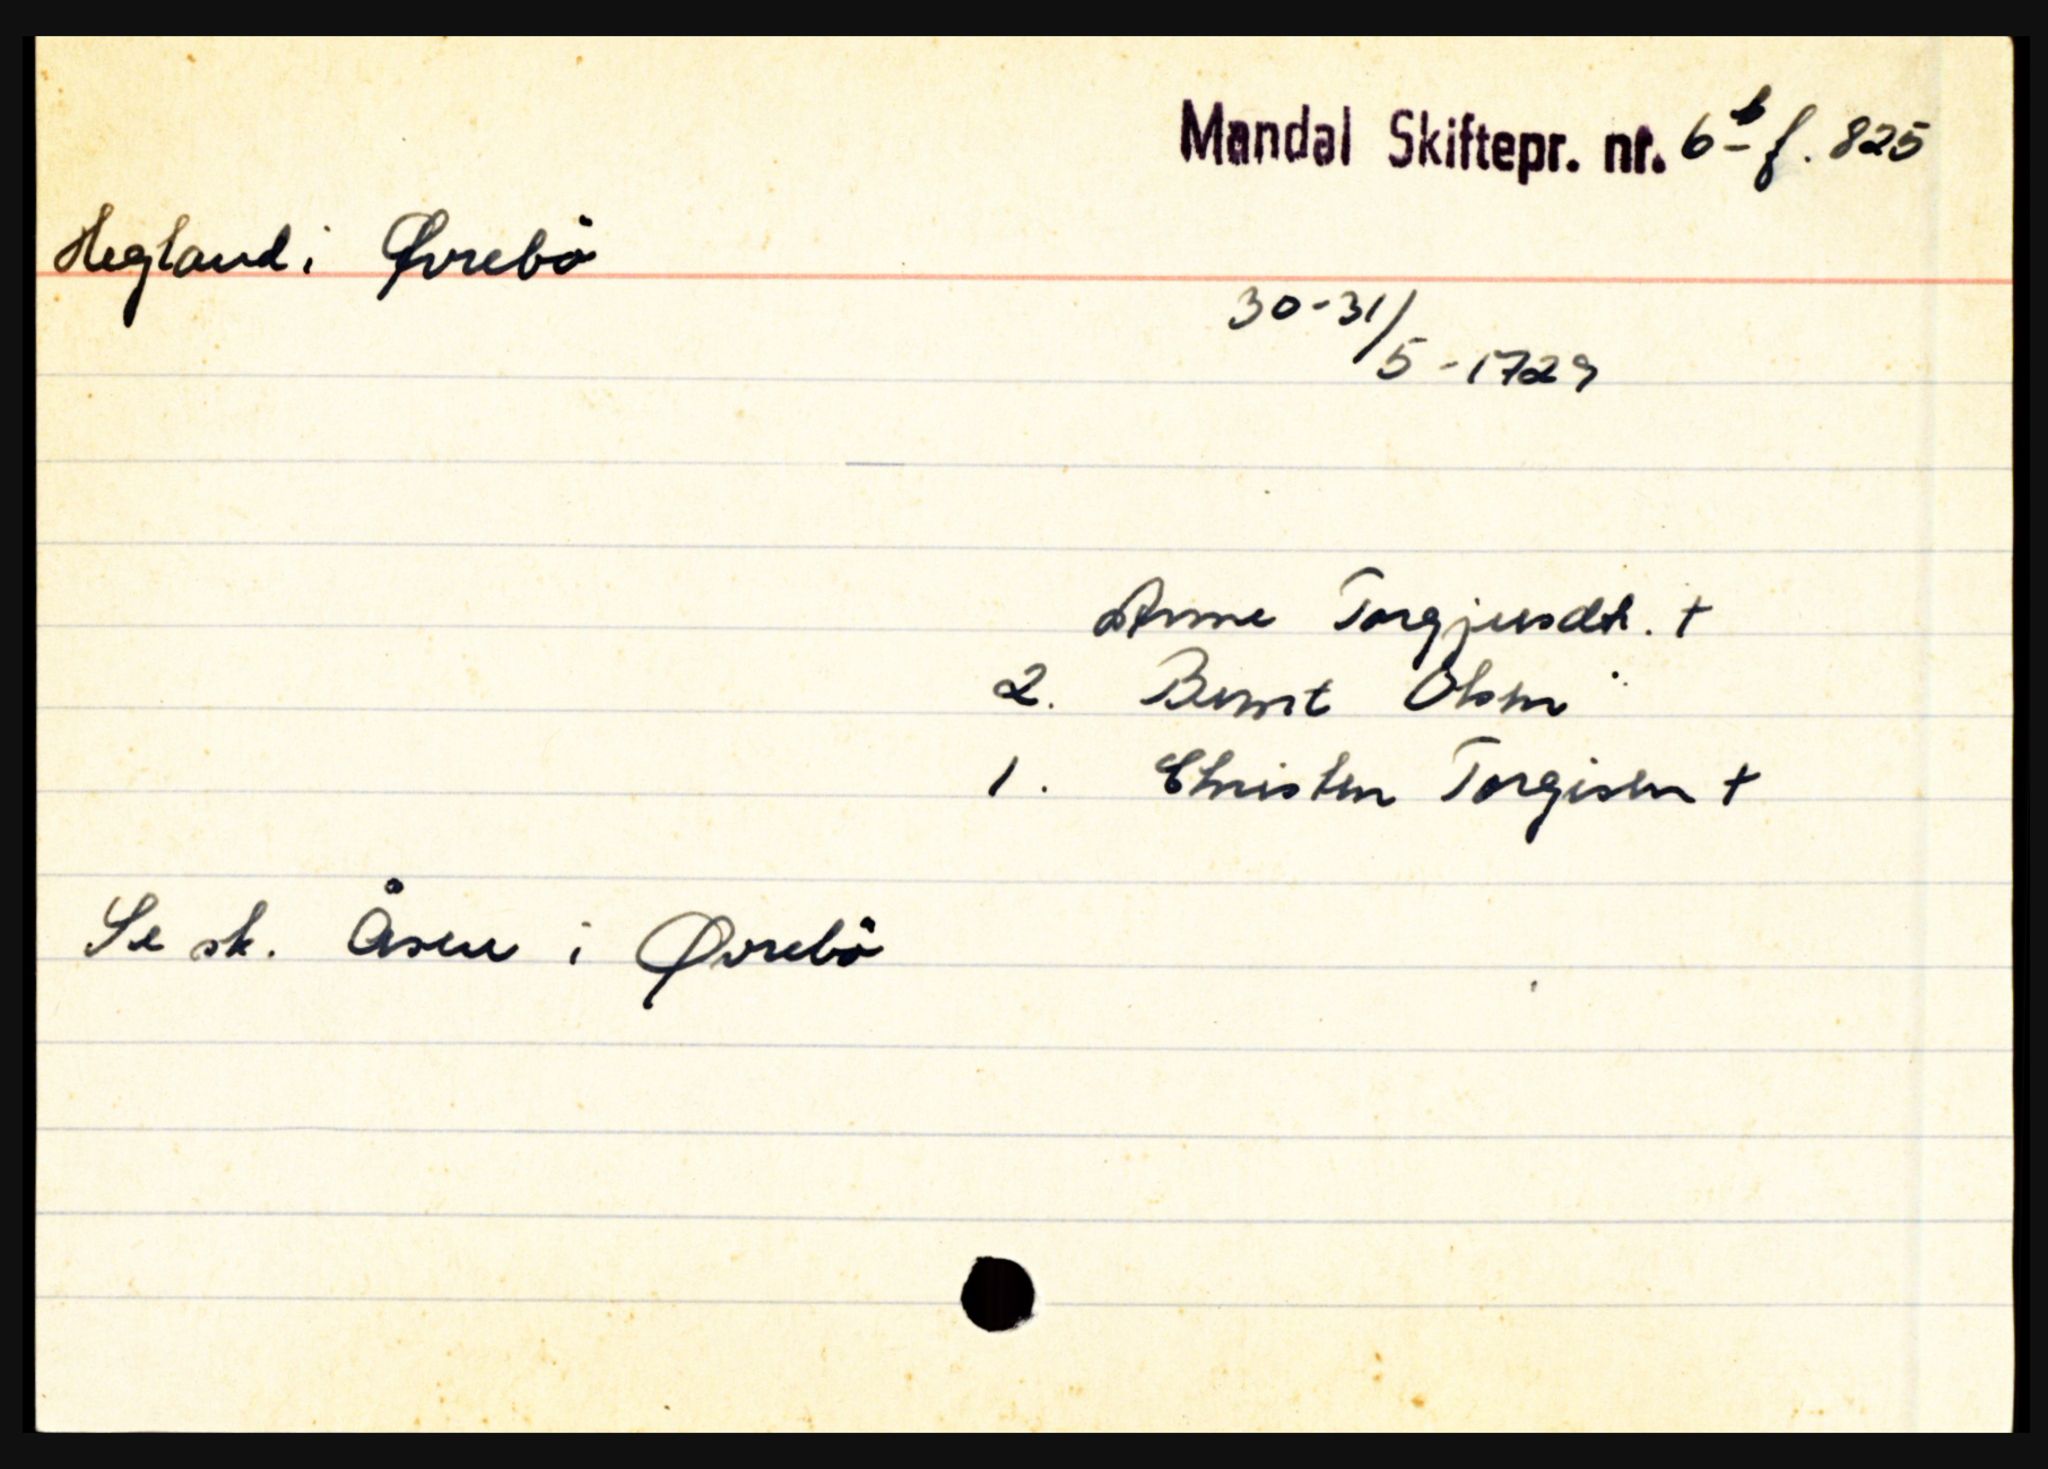 Mandal Skiftepr. nr. 6 b f. 825
Hegland i Øvrebö
30-31/5-1729
Anne Torgjusdtr. +
2. Bernt Olsen
1. Christen Torgisen +
Se sk. Åsen i Øvrebö